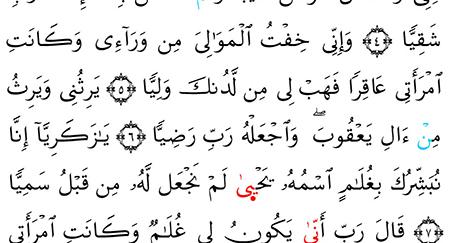 شَقِيًّا ﴿٤﴾ وَإِنِّى خِفْتُ ٱلْمَوَٰلِىَ مِن وَرَآءِى وَكَانَتِ
ٱمْرَأَتِى عَاقِرًا فَهَبْ لِى مِن لَّدُنكَ وَلِيًّا ﴿٥﴾ يَرِثُنِى وَيَرِثُ
مِنْ ءَالِ يَعْقُوبَ ۖ وَٱجْعَلْهُ رَبِّ رَضِيًّا ﴿٦﴾ يَٰزَكَرِيَّآ إِنَّا
نُبَشِّرُكَ بِغُلَٰمٍ ٱسْمُهُۥ يَحْيَىٰ لَمْ نَجْعَل لَّهُۥ مِن قَبْلُ سَمِيًّا
﴿٧﴾ قَالَ رَبِّ أَنَّىٰ يَكُونُ لِى غُلَٰمٌ وَكَانَتِ ٱمْرَأَتِى